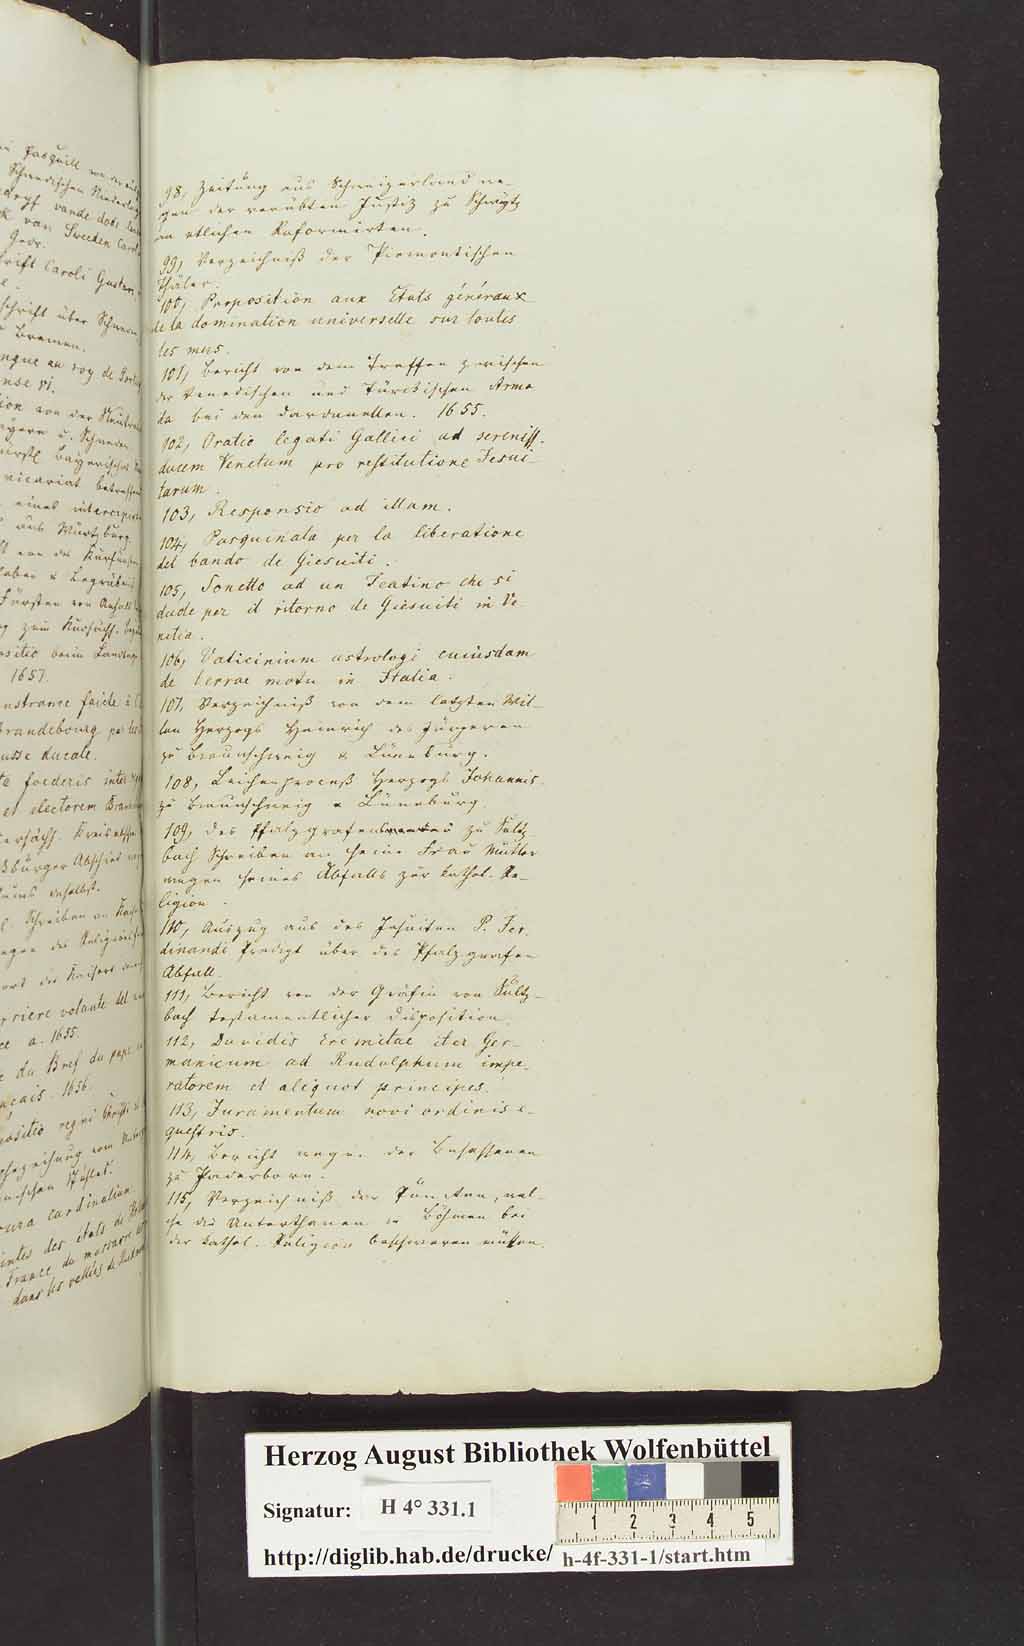 98, Zeitung aus Schweizerland we-
gen der verübten Justiz zu Schwytz
an etlichen Reformirten.
99, Verzeichniß der Piemontischen
Thäler.
100, Proposition aux Etats généraux
de la domination universelle sur toutes
les mers.
101, Bericht von dem Treffen zwischen
der Venedischen und Türckischen Arma
da bei den Dardanellen. 1655.
102, Oratio legati Gallici ad sereniss.
ducem Venetum pro restitutione Jesui-
tarum.
103, Responsio ad illam.
104, Pasquinata per la liberatione
del bando de Giesuiti.
105, Sonetto ad un Teatino che si
duole per il ritorno de Giesuiti in Ve-
netia.
106, Vaticinium astrologi cuiusdam
de terrae motu in Italia.
107, Verzeichniß von dem letzten Wil-
len Herzogs Heinrich des Jüngeren
zu Braunschweig u Lüneburg.
108, Leichenproceß Herzogs Johannis
zu Braunschweig u Lüneburg.
109, Des Pfalzgrafen zu Sultz-
bach Schreiben an seine Frau Mutter
wegen seines Abfalls zur kathol. Re-
ligion.
110, Auszug aus des Jesuiten P. Fer-
dinandi Predigt über des Pfalzgrafen
Abfall.
111, Bericht von der Gräfin von Sultz-
bach testamentlicher Disposition.
112, Davidis Eremitae iter Ger-
manicum ad Rudolphum impe-
ratorem et aliquot principes.
113, Juramentum novi ordinis e-
questris.
114, Bericht wegen der Besessenen
zu Paderborn.
115, Verzeichniß der Puncten, wel-
che die Unterthanen in Böhmen bei
der kathol. Religion beschweren müssen.
Pasquill
Schwedischen
van Sweden
Caroli Gustav
Bremen.
1657.
Brandebourg
ducale.
foederis inter
et electorem Brande
Kreis
Abschied
daselbst.
Schreiben an
Kaisers
volante
a. 1655.
du Bref du pape
1656.
regni
cardinalium
des etats de
France du massacre
dans les vallées de
Herzog August Bibliothek Wolfenbüttel
Signatur: H 4° 331.1
1 2 3 4 5
http://diglib.hab.de/drucke/ h-4f-331-1/start.htm